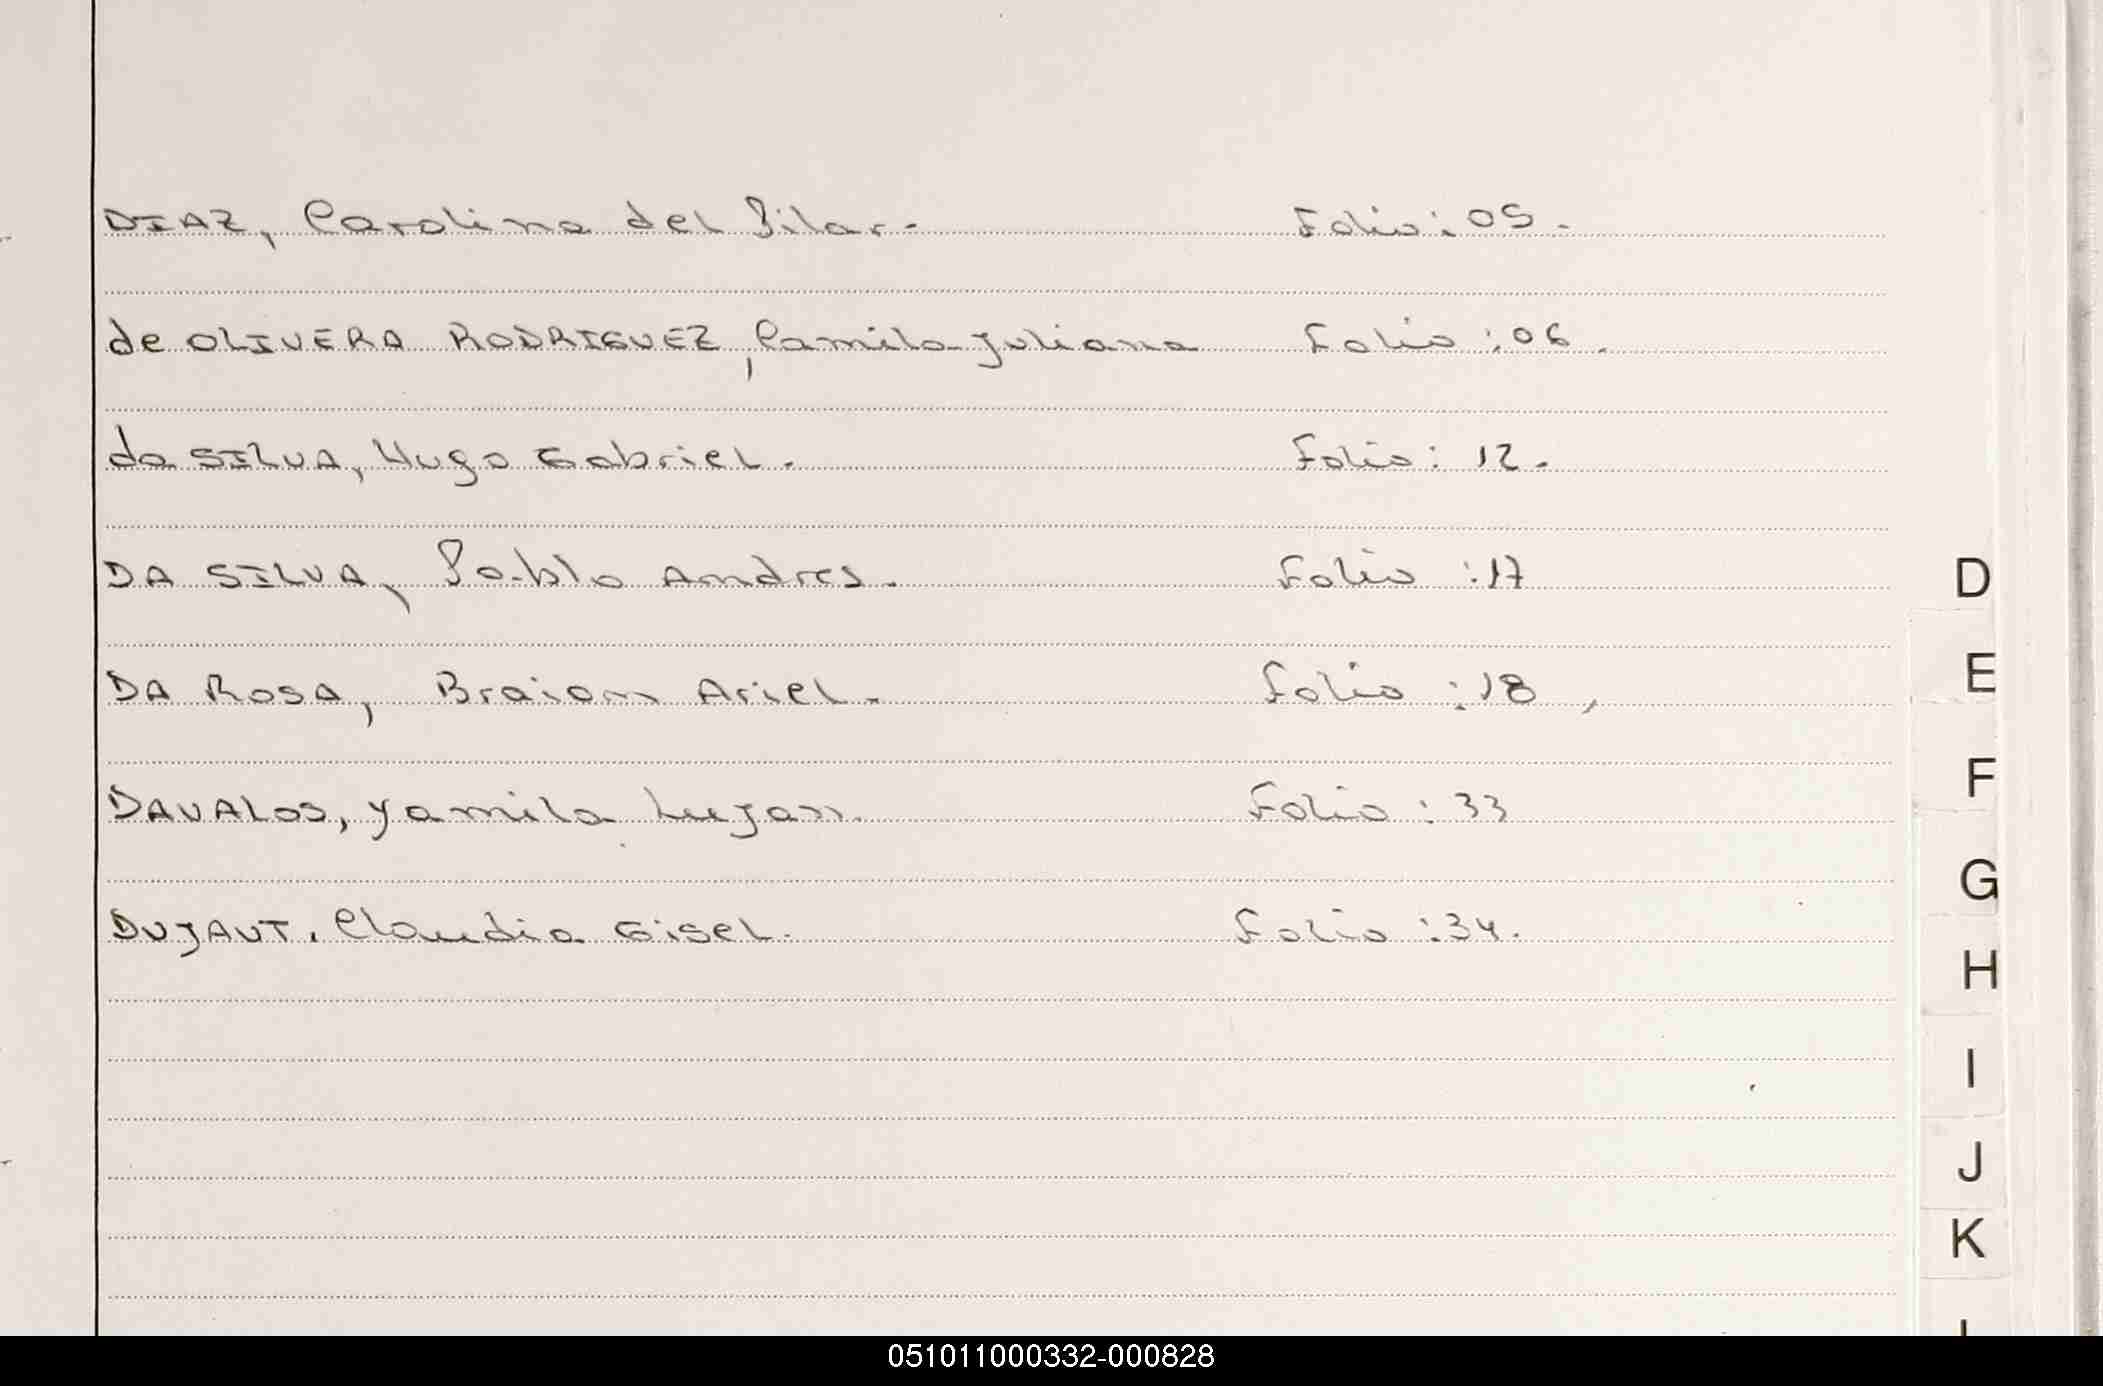 DIAZ, Carolina del Pilar. Folio: 05.
de OLIVERA RODRIGUEZ, Camila Juliana Folio: 06.
da SILVA, Hugo Gabriel. Folio: 12.
DA SILVA, Pablo Andres. Folio: 17
DA ROSA, Braian Ariel. Folio: 18,
DAVALOS, Yamila Lujan. Folio: 33
DUJAUT. Claudia Gisel. Folio: 34.
D
E
F
G
H
I
J
K
051011000332-000828